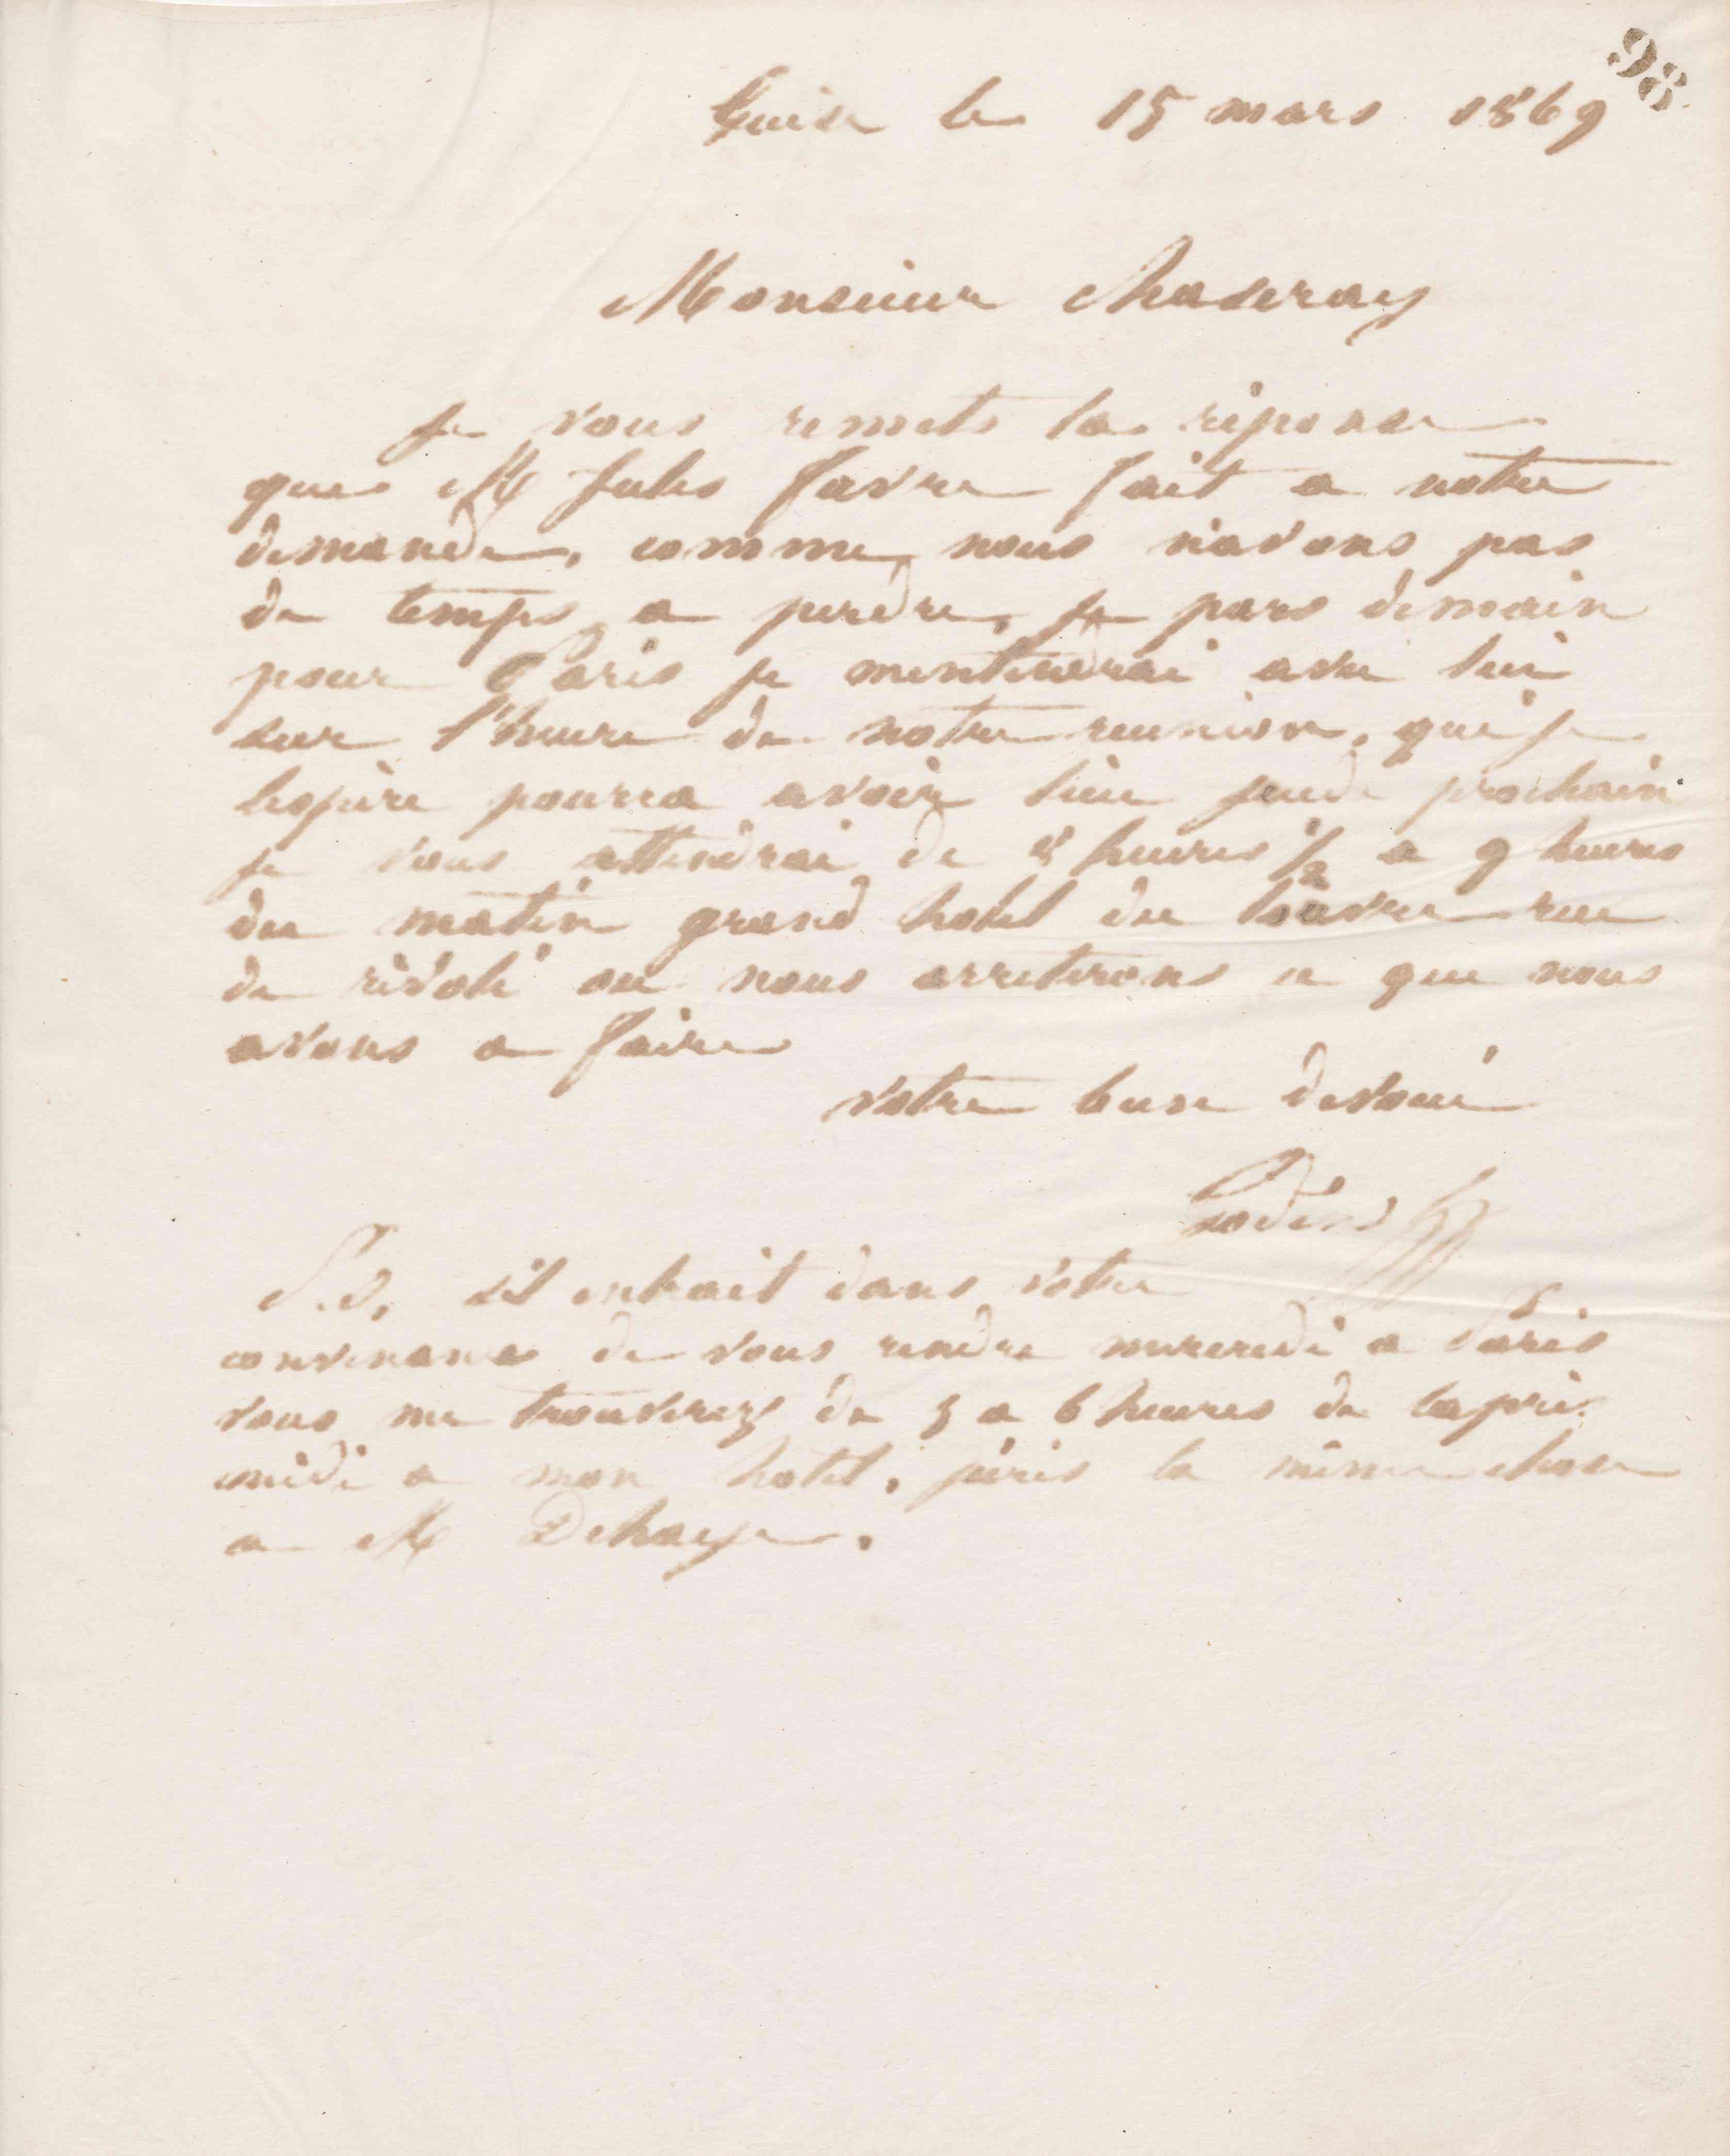 98
Guise le 15 mars 1869
Monsieur Chaseray
Je vous remets la réponse
que M Jules Favre fait a notre
demande, comme nous n'avons pas
de temps a perdre, je pars demain
pour Paris je mentendrai avec lui
sur l'heure de notre reunion, que je
lespère pourra avoir lieu jeudi prochain
je vous attendrai de 8 heures 1/2 a 9 heures
du matin grand hotel du louvre rue
de rivoli ou nous arreterons ce que nous
avons a faire
votre bien devoué
Godin
P.S. s'il entrait dans votre
convenance de vous rendre mercredi a Paris
vous me trouverez de 5 a 6 heures de laprès
midi a mon hotel, j'écris la même chose
a M Dehaye.